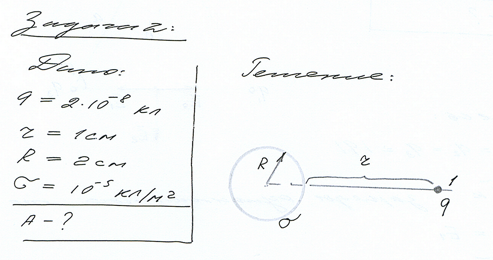 Задача 2:
Дано:
q = 2·10⁻⁸ Кл
r = 1 см
R = 2 см
σ = 10⁻⁵ Кл/м²
A - ?
Решение:
R
r
1
q
σ